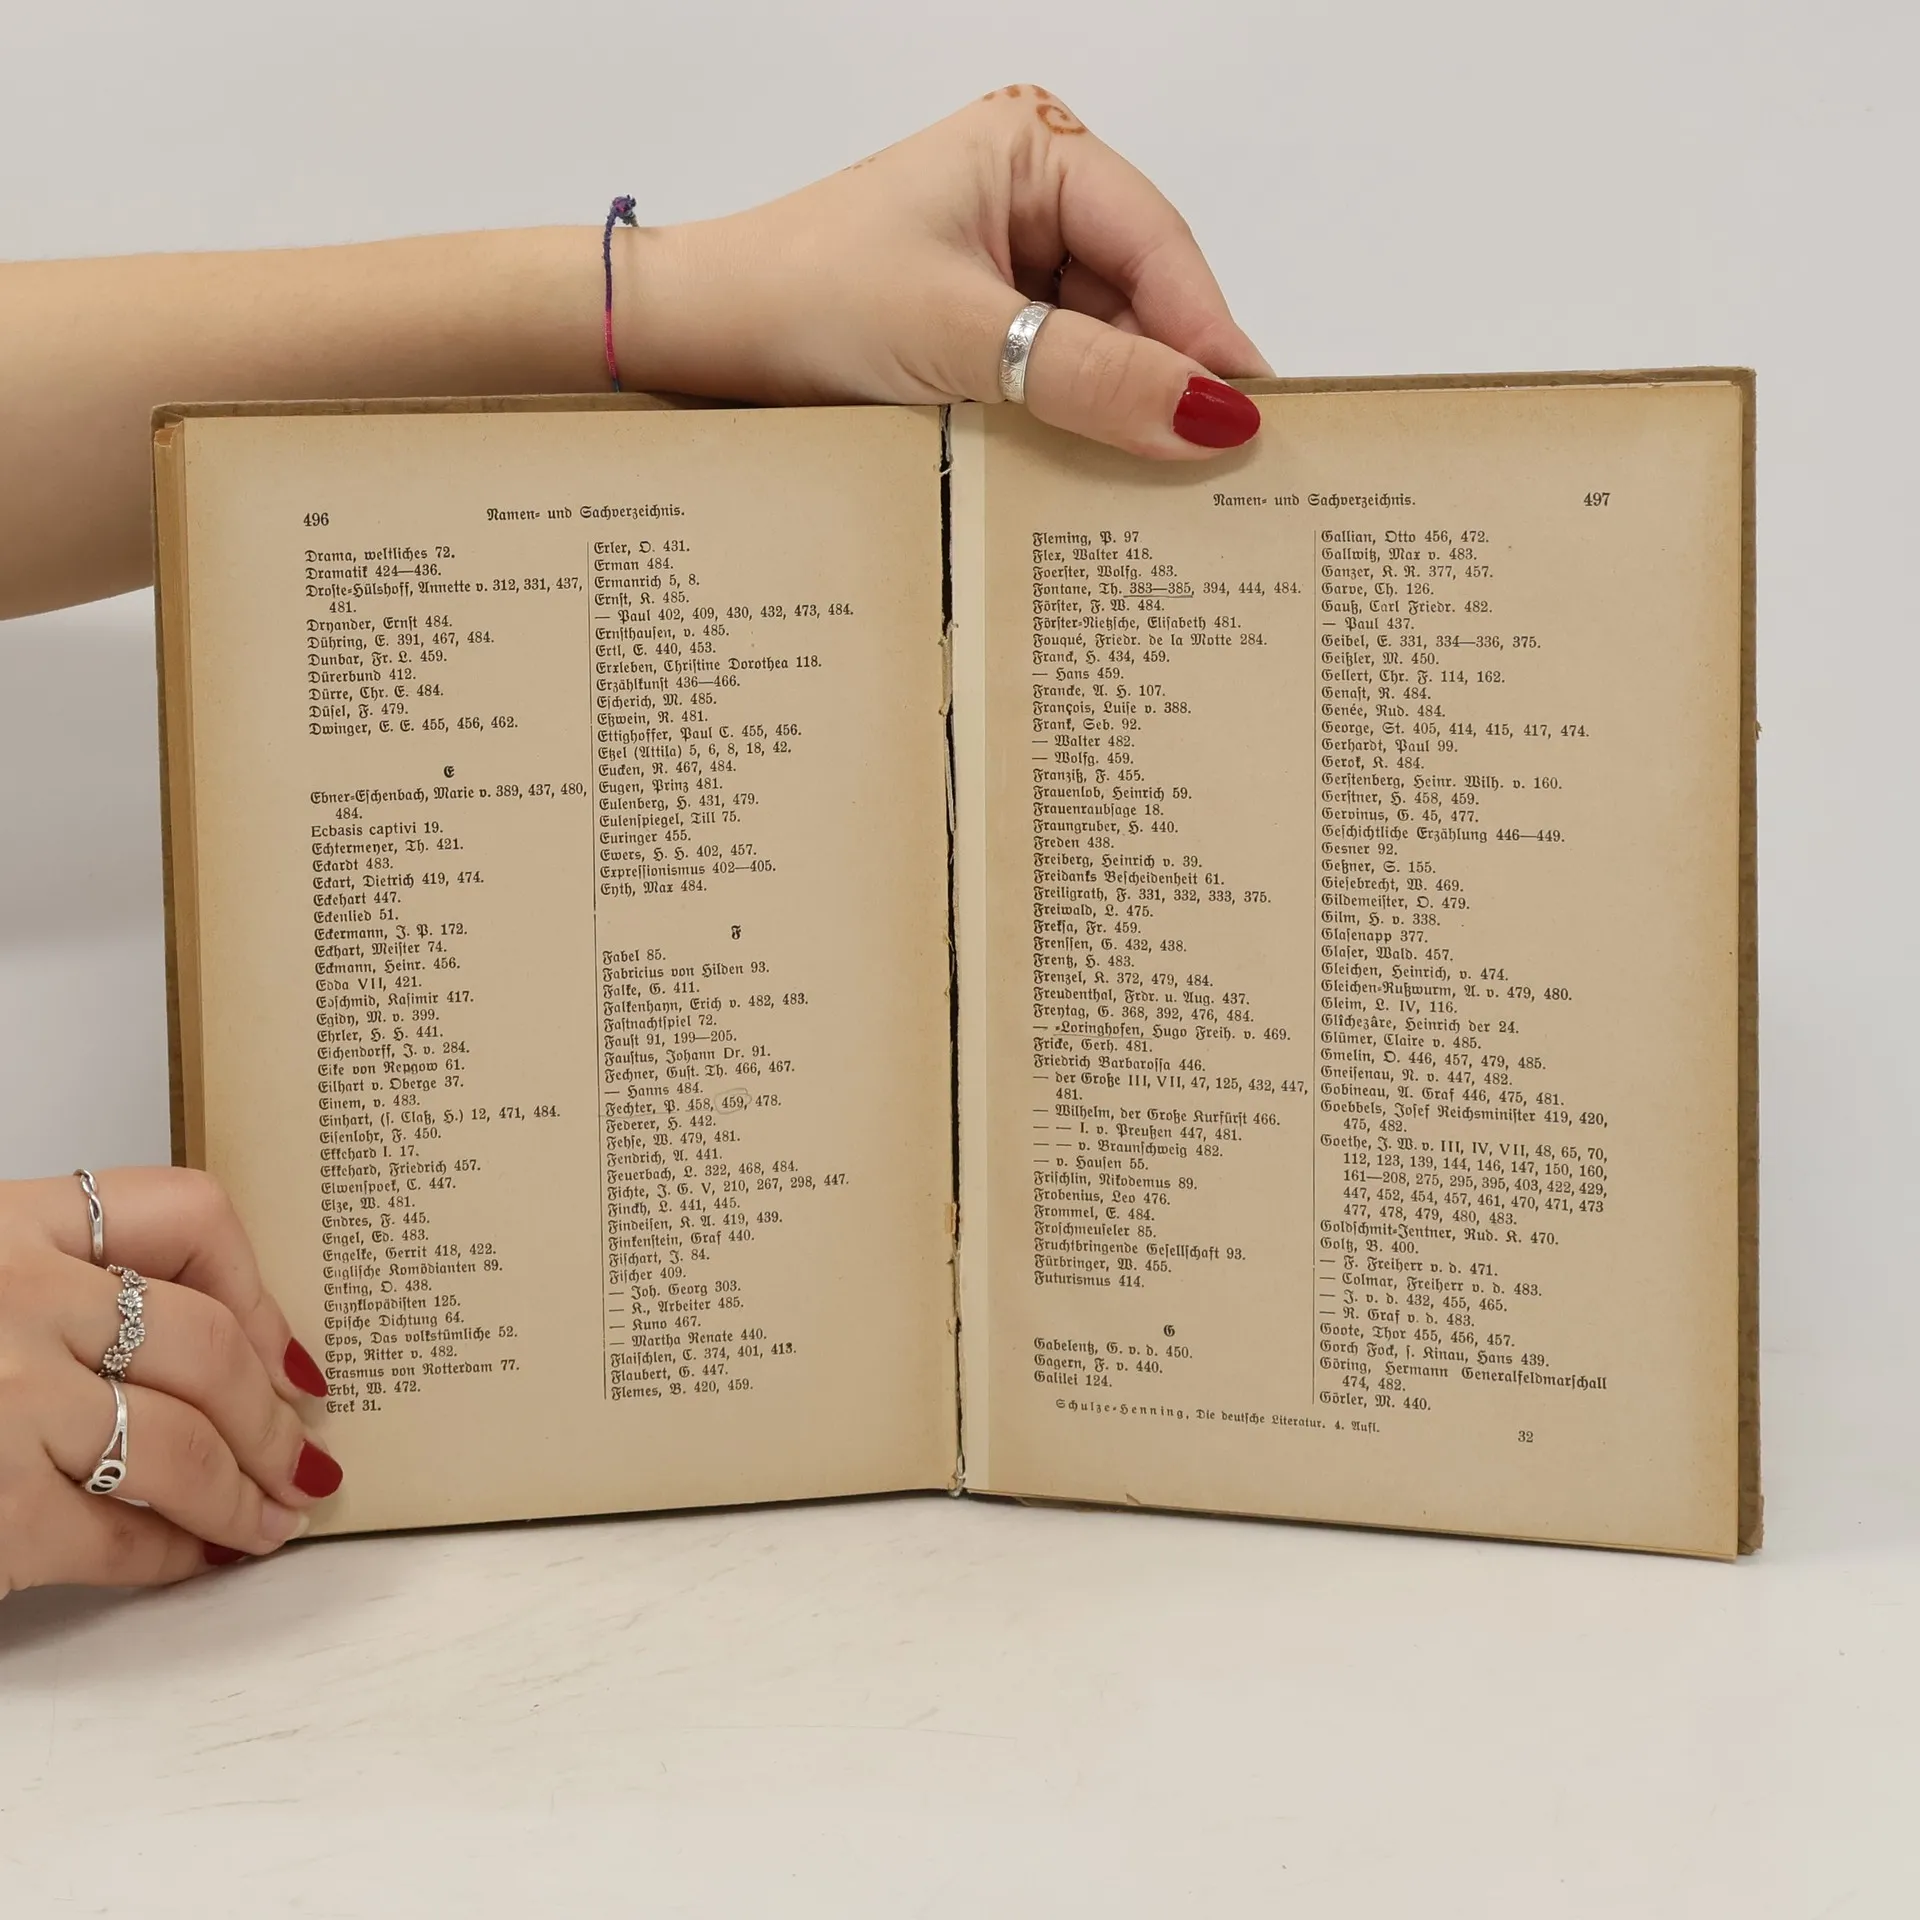 496
Namen- und Sachverzeichnis.
Drama, weltliches 72.
Dramatik 424—436.
Droste-Hülshoff, Annette v. 312, 331, 437,
481.
Dryander, Ernst 484.
Dühring, E. 391, 467, 484.
Dunbar, Fr. L. 459.
Dürerbund 412.
Dürre, Chr. E. 484.
Düsel, F. 479.
Dwinger, E. E. 455, 456, 462.
E
Ebner-Eschenbach, Marie v. 389, 437, 480,
484.
Ecbasis captivi 19.
Echtermeyer, Th. 421.
Eckardt 483.
Eckart, Dietrich 419, 474.
Eckehart 447.
Eckenlied 51.
Eckermann, J. P. 172.
Eckhart, Meister 74.
Eckmann, Heinr. 456.
Edda VII, 421.
Edschmid, Kasimir 417.
Egidy, M. v. 399.
Ehrler, H. H. 441.
Eichendorff, J. v. 284.
Eike von Repgow 61.
Eilhart v. Oberge 37.
Einem, v. 483.
Einhart, (s. Claß, H.) 12, 471, 484.
Eisenlohr, F. 450.
Ekkehard I. 17.
Ekkehard, Friedrich 457.
Elwenspoek, C. 447.
Elze, W. 481.
Endres, F. 445.
Engel, Ed. 483.
Engelke, Gerrit 418, 422.
Englische Komödianten 89.
Enking, O. 438.
Enzyklopädisten 125.
Epische Dichtung 64.
Epos, Das volkstümliche 52.
Epp, Ritter v. 482.
Erasmus von Rotterdam 77.
Erbt, W. 472.
Erek 31.
Erler, O. 431.
Erman 484.
Ermanrich 5, 8.
Ernst, K. 485.
— Paul 402, 409, 430, 432, 473, 484.
Ernsthausen, v. 485.
Ertl, E. 440, 453.
Erxleben, Christine Dorothea 118.
Erzählkunst 436—466.
Escherich, M. 485.
Eßwein, R. 481.
Ettighoffer, Paul C. 455, 456.
Etzel (Attila) 5, 6, 8, 18, 42.
Eucken, R. 467, 484.
Eugen, Prinz 481.
Eulenberg, H. 431, 479.
Eulenspiegel, Till 75.
Euringer 455.
Ewers, H. H. 402, 457.
Expressionismus 402—405.
Eyth, Max 484.
F
Fabel 85.
Fabricius von Hilden 93.
Falke, G. 411.
Falkenhayn, Erich v. 482, 483.
Fastnachtspiel 72.
Faust 91, 199—205.
Faustus, Johann Dr. 91.
Fechner, Gust. Th. 466, 467.
— Hanns 484.
Fechter, P. 458, 459, 478.
Federer, H. 442.
Fehse, W. 479, 481.
Fendrich, A. 441.
Feuerbach, L. 322, 468, 484.
Fichte, J. G. V, 210, 267, 298, 447.
Finckh, L. 441, 445.
Findeisen, K. A. 419, 439.
Finkenstein, Graf 440.
Fischart, J. 84.
Fischer 409.
— Joh. Georg 303.
— K., Arbeiter 485.
— Kuno 467.
— Martha Renate 440.
Flaischlen, C. 374, 401, 413.
Flaubert, G. 447.
Flemes, B. 420, 459.
Namen- und Sachverzeichnis.
497
Fleming, P. 97
Flex, Walter 418.
Foerster, Wolfg. 483.
Fontane, Th. 383—385, 394, 444, 484.
Förster, F. W. 484.
Förster-Nietzsche, Elisabeth 481.
Fouqué, Friedr. de la Motte 284.
Franck, H. 434, 459.
— Hans 459.
Francke, A. H. 107.
François, Luise v. 388.
Frank, Seb. 92.
— Walter 482.
— Wolfg. 459.
Franziß, F. 455.
Frauenlob, Heinrich 59.
Frauenraubsage 18.
Fraungruber, H. 440.
Freden 438.
Freiberg, Heinrich v. 39.
Freidanks Bescheidenheit 61.
Freiligrath, F. 331, 332, 333, 375.
Freiwald, L. 475.
Freksa, Fr. 459.
Frenssen, G. 432, 438.
Frentz, H. 483.
Frenzel, K. 372, 479, 484.
Freudenthal, Frdr. u. Aug. 437.
Freytag, G. 368, 392, 476, 484.
— -Loringhofen, Hugo Freih. v. 469.
Fricke, Gerh. 481.
Friedrich Barbarossa 446.
— der Große III, VII, 47, 125, 432, 447,
481.
— Wilhelm, der Große Kurfürst 466.
— — I. v. Preußen 447, 481.
— — v. Braunschweig 482.
— v. Hausen 55.
Frischlin, Nikodemus 89.
Frobenius, Leo 476.
Frommel, E. 484.
Froschmeuseler 85.
Fruchtbringende Gesellschaft 93.
Fürbringer, W. 455.
Futurismus 414.
G
Gabelentz, G. v. d. 450.
Gagern, F. v. 440.
Galilei 124.
Gallian, Otto 456, 472.
Gallwitz, Max v. 483.
Ganzer, K. R. 377, 457.
Garve, Ch. 126.
Gauß, Carl Friedr. 482.
— Paul 437.
Geibel, E. 331, 334—336, 375.
Geißler, M. 450.
Gellert, Chr. F. 114, 162.
Genast, R. 484.
Genée, Rud. 484.
George, St. 405, 414, 415, 417, 474.
Gerhardt, Paul 99.
Gerok, K. 484.
Gerstenberg, Heinr. Wilh. v. 160.
Gerstner, H. 458, 459.
Gervinus, G. 45, 477.
Geschichtliche Erzählung 446—449.
Gesner 92.
Geßner, S. 155.
Giesebrecht, W. 469.
Gildemeister, O. 479.
Gilm, H. v. 338.
Glasenapp 377.
Glaser, Wald. 457.
Gleichen, Heinrich, v. 474.
Gleichen-Rußwurm, A. v. 479, 480.
Gleim, L. IV, 116.
Glîchezâre, Heinrich der 24.
Glümer, Claire v. 485.
Gmelin, O. 446, 457, 479, 485.
Gneisenau, N. v. 447, 482.
Gobineau, A. Graf 446, 475, 481.
Goebbels, Josef Reichsminister 419, 420,
475, 482.
Goethe, J. W. v. III, IV, VII, 48, 65, 70,
112, 123, 139, 144, 146, 147, 150, 160,
161—208, 275, 295, 395, 403, 422, 429,
447, 452, 454, 457, 461, 470, 471, 473
477, 478, 479, 480, 483.
Goldschmit-Jentner, Rud. K. 470.
Goltz, B. 400.
— F. Freiherr v. d. 471.
— Colmar, Freiherr v. d. 483.
— J. v. d. 432, 455, 465.
— R. Graf v. d. 483.
Goote, Thor 455, 456, 457.
Gorch Fock, s. Kinau, Hans 439.
Göring, Hermann Generalfeldmarschall
474, 482.
Görler, M. 440.
Schulze-Henning, Die deutsche Literatur. 4. Aufl.
32